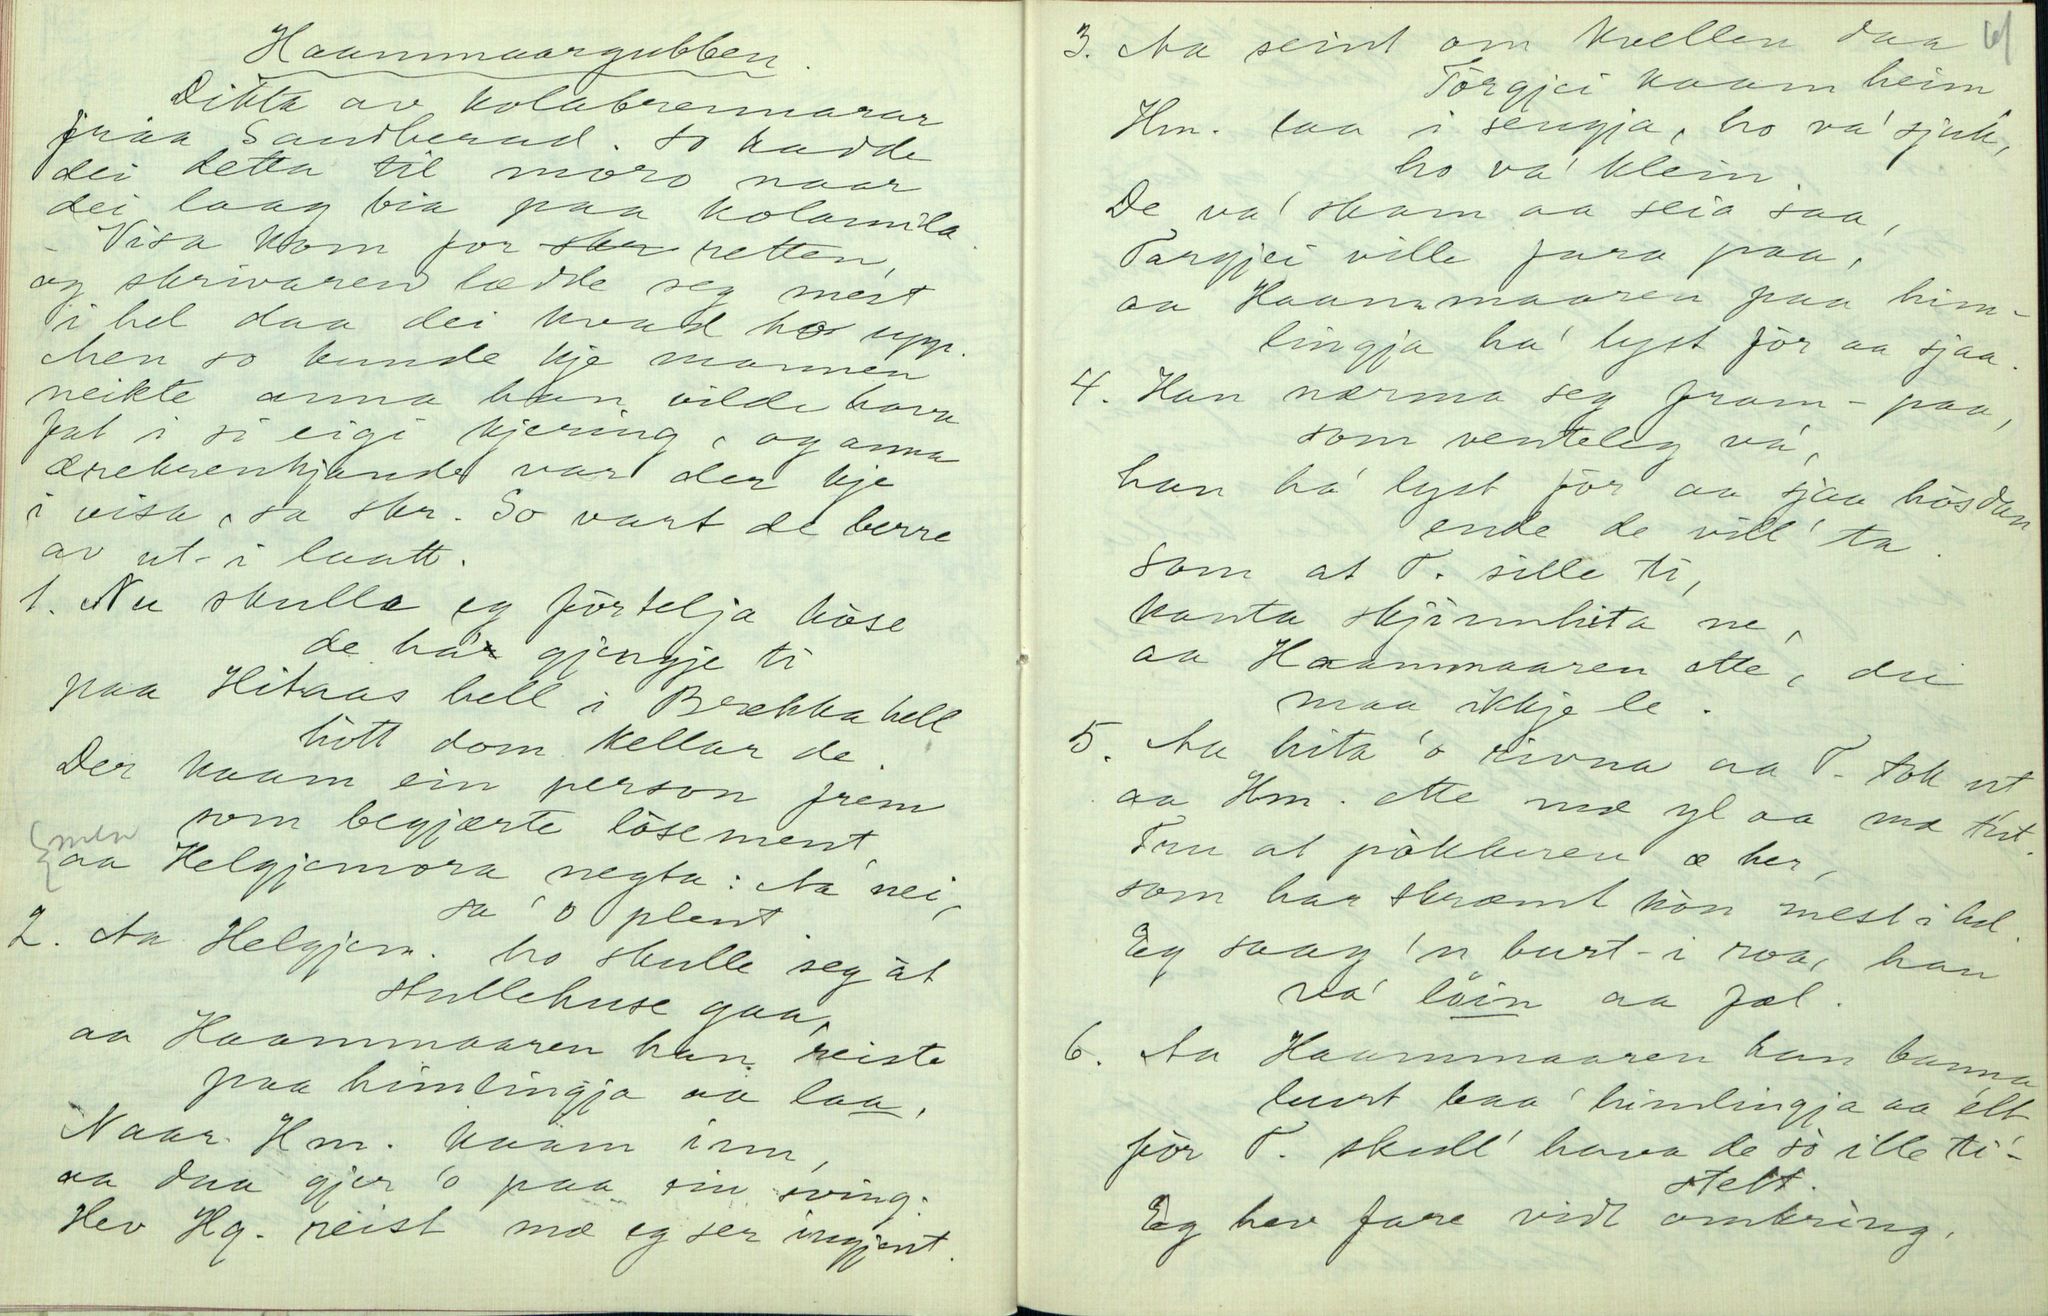 Haammaargubben.
Dikta av kolabrennarar
fraa Sandherad. So hadde
dei detta til moro naar
dei laag bia paa kolamila.
- Visa kom for skr retten,
og skrivaren lædde seg mest
i hel daa dei kvad ho upp.
Men so kunde kje mannen
neikte anna han vilde hava
fat i si eigi kjering, og anna
ærekrenkjande var der kje
i visa, sa skr. So vart de berre
av ut- i laatt.
1. Nu skulle eg förtelja höse
de ha' gjengje ti
paa Hitaas hell i Brækka hell
hött dom kellar de.
Der kaam ein person frem
som begjærte lösement,
men
aa Helgjemora negta: Aa nei,
sa' o plent.
2. Aa Helgjem. ho skulle seg åt
stullehuse gaa,
aa Haammaaren han reiste
paa himlingja aa laa,
Naar Hm. kaam inn,
aa daa gjer 'o paa sin sving.
Hev Hg. reist mæ eg ser ingjent.
3. Aa seint om kvellen daa
61
Törgjei kaam heim
Hm. laa i sengja, ho va' sjuk,
ho va' klein.
De va' skam aa seia saa,
Targjei ville fara paa,
aa Haammaaren paa him-
lingja ha' lyst för aa sjaa.
4. Han nærma seg fram-paa,
som venteleg va',
han ha' lyst för aa sjaa hösdan
ende de vill' ta.
Som at T. sille ti,
kanta skjinnhita ne,
aa Haammaaren ette, dei
maa ikkje le.
5. Aa hita 'o rivna aa T. tok ut
aa Hm. ette mæ yl aa mæ tut.
Tru at pökkeren æ her,
som har skræmt hön mest i hel.
Eg saag 'n burt-i roa, han
va' löin aa fæl.
6. Aa Haammaaren han banna
burt baa' himlingja aa elt
för T. skull' hava de så ille ti-
stelt.
Eg hev fare vidt omkring,